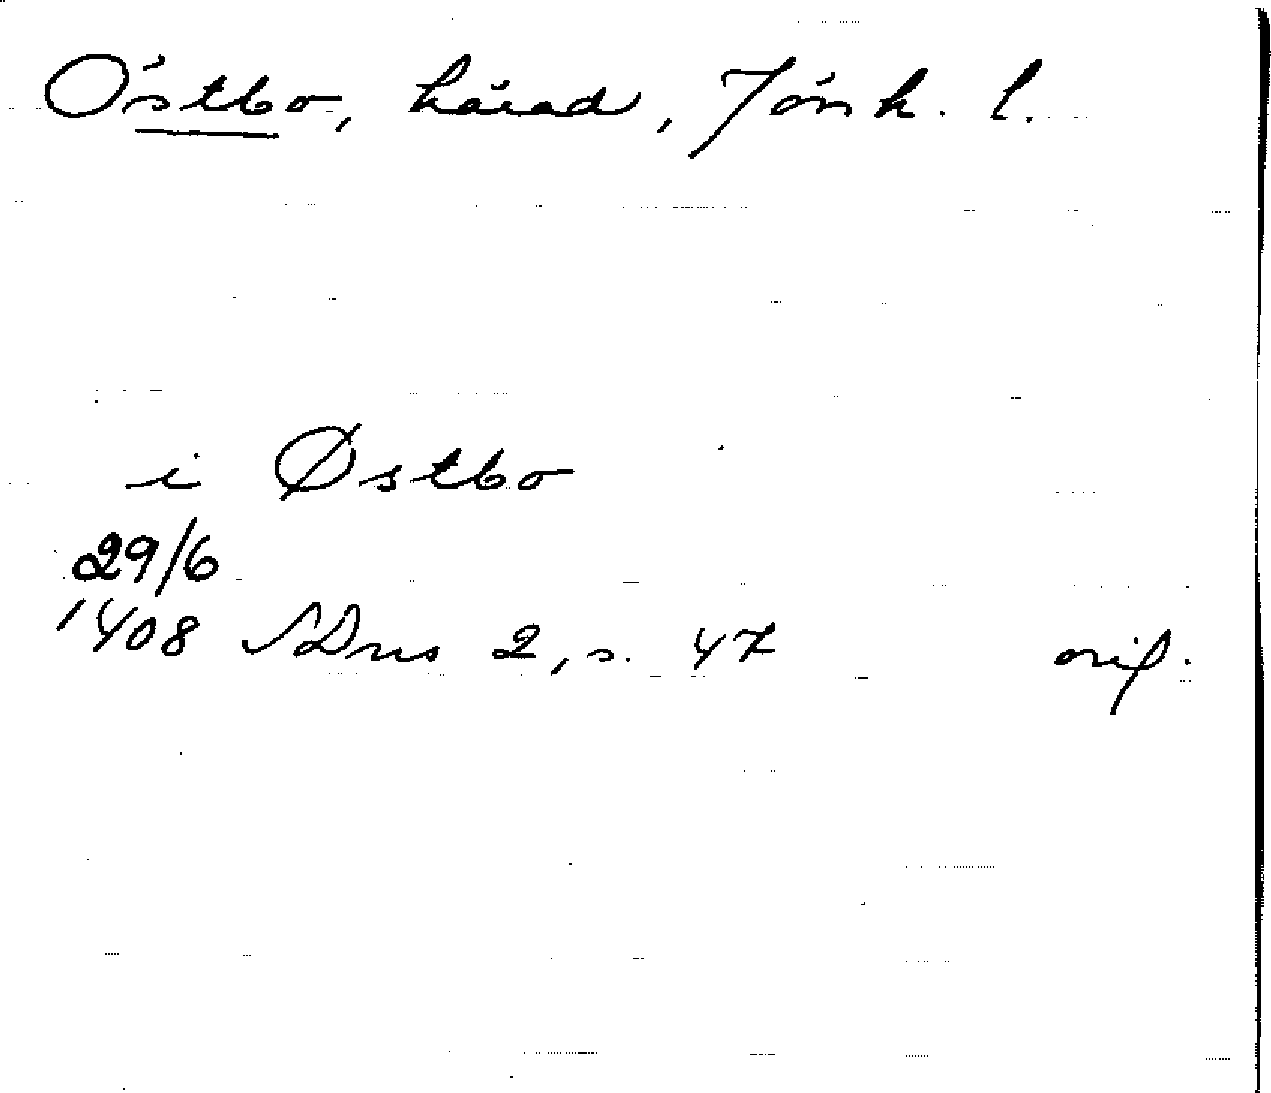 Östbo, härad, Jönk. l.
i Østbo
29/6
1408 SDns 2, s. 47 orig.